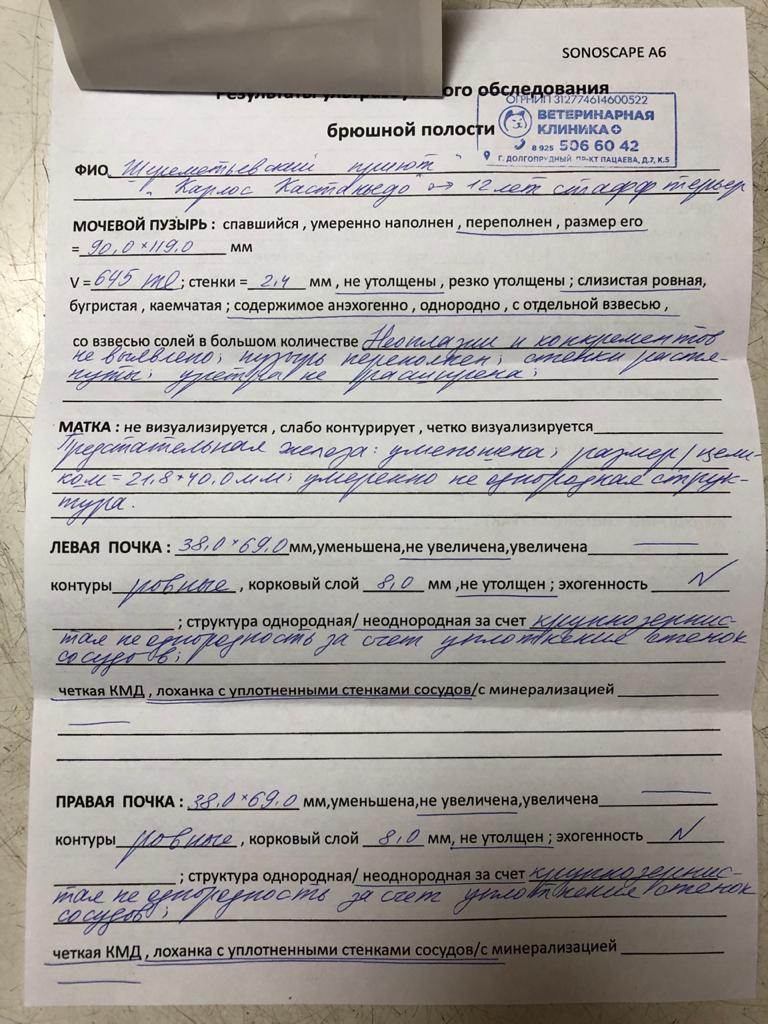 SONOSCAPE A6
Результаты ультра ого обследования
брюшной полости
ОГРНИП 312774614600522
ВЕТЕРИНАРНАЯ
КЛИНИКА+
8 925 506 60 42
Г. ДОЛГОПРУДНЫЙ, ПР-КТ ПАЦАЕВА, Д.7, К.5
ФИО Шереметьевский приют
"Карлос Кастаньедо" 12 лет стафф терьер
МОЧЕВОЙ ПУЗЫРЬ : спавшийся , умеренно наполнен , переполнен , размер его
= 90,0×119,0 мм
V = 645 ml ; стенки = 2,4 мм , не утолщены , резко утолщены ; слизистая ровная,
бугристая , каемчатая ; содержимое анэхогенно , однородно , с отдельной взвесью ,
со взвесью солей в большом количестве Неоплазии и конкрементов
не выявлено; пузырь переполнен; стенки растя-
нуты; уретра не расширена;
МАТКА : не визуализируется , слабо контурирует , четко визуализируется
Предстательная железа: уменьшена; размер/цели-
ком = 21,8*40,0 мм; умеренно не однородная струк-
тура.
ЛЕВАЯ ПОЧКА : 38,0×69,0 мм,уменьшена,не увеличена,увеличена
контуры ровные , корковый слой 8,0 мм ,не утолщен ; эхогенность N
; структура однородная/ неоднородная за счет крупнозернис-
тая не однородность за счет уплотнения стенок
сосудов;
четкая КМД , лоханка с уплотненными стенками сосудов/с минерализацией
ПРАВАЯ ПОЧКА : 38,0×69,0 мм,уменьшена,не увеличена,увеличена
контуры ровные , корковый слой 8,0 мм, не утолщен ; эхогенность N
; структура однородная/ неоднородная за счет крупнозернис-
тая не однородность за счет уплотнения стенок
сосудов;
четкая КМД , лоханка с уплотненными стенками сосудов/с минерализацией